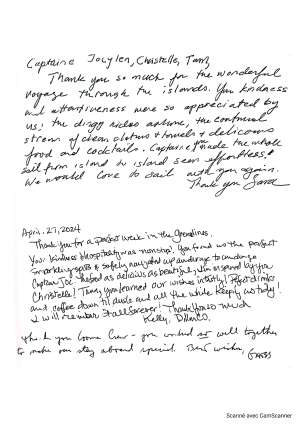 Captaine Jocylen, Christelle, Tom,
Thank you so much for the wonderful
voyage through the islands. You kindness
and attentiveness were so appreciated by
us; the dinggy rides ashore, the continual
stream of clean clothes + towels + delicious
food and cocktails. Captaine you made the whole
sail from island to island seem effortless.
We would love to sail with you again.
Thank you
April. 27, 2024
Thank you for a perfect week in the Grenadines.
Your kindness & hospitality was nonstop. You found us the perfect
snorkeling spots & safely navigated us
Captain Joe. as delicious as beautiful,
Christelle! Tommy you formed our wishes
and coffee down til dusk and all the while keeping us
I will remember it all forever! Thank you so much
Kelly,
thank you Come Crew - you worked so well together
to make our stay aboard special. Best wishes,
Scanné avec CamScanner